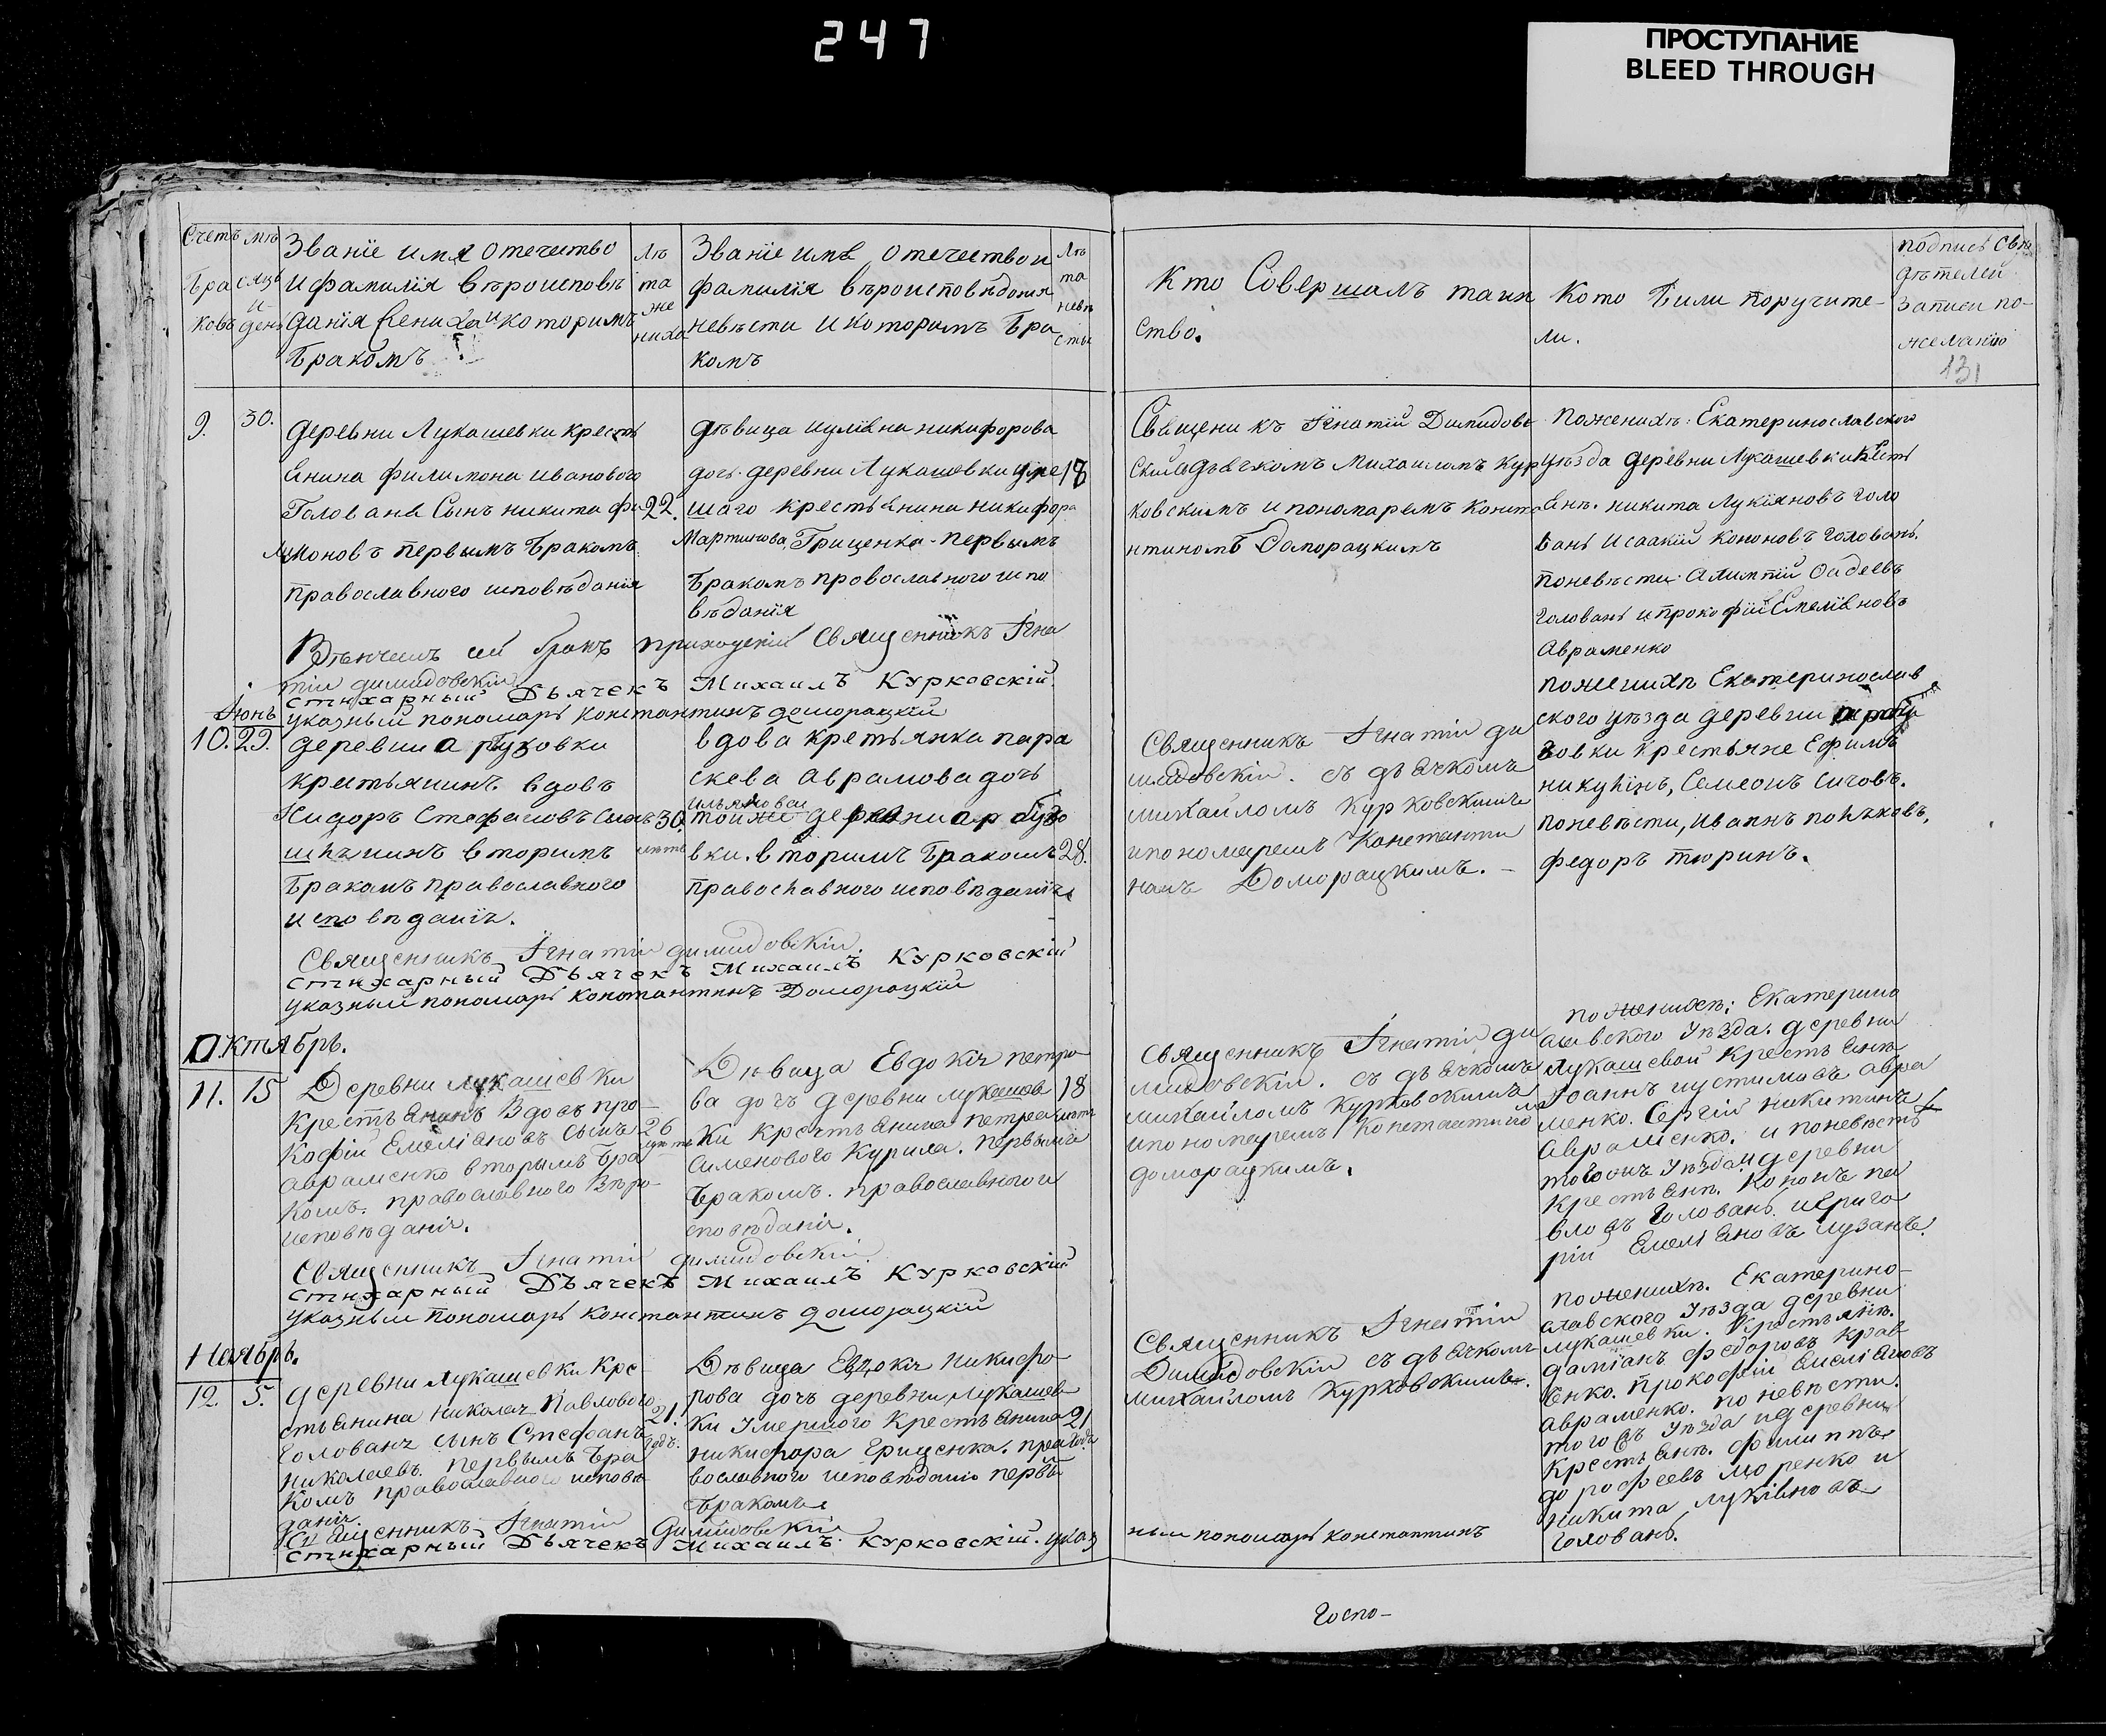 247
ПРОСТУПАНИЕ
BLEED THROUGH
Счетъ
Бра
ковъ
мѣ
сяцъ
и
день
Званіе имя отечество
и фамилія вѣроисповѣ
данія жениха и которимъ
Бракомъ
Лѣ
та
же
ниха
Званіе имя отечество и
фамилія вѣроисповѣданія
невѣсти и которимъ Бра
комъ
Лѣ
та
невѣ
сты
Кто Совершалъ таин
ство.
Кто Били поручите-
ли.
подпись сви
дѣтелей
записи по-
желанію
131
9. 30.
деревни Лукашевки крестъ
янина филимона иванового
Голованя Сынъ никита фи
лимоновъ первымъ Бракомъ
православного исповѣданія
22.
дѣвица иулівна никифорова
дочь деревни Лукашевки умер
шаго крестьянина никифора
Мартинова Гриценка первымъ
Бракомъ православного испо
вѣданія
18
Священикъ Игнатій Димидов
скій з дьячкомъ Михаиломъ Кур
ковскимъ и пономаремъ Конста
нтиномъ Доморацкимъ
По женихѣ: Екатеринославского
уѣзда деревни Лукашевки Кѣсть
янѣ. никита Лукіяновъ голо
вань Исаакій Кононовъ Головань.
по невѣсти: Алимпій Фадеевъ
Головань и прокофій Емеліяновъ
Авраменко
Вѣнчалъ сей бракъ приходскій Священникъ Игна
тій димидовскій
стихарный Дьячекъ Михаилъ Курковскій
указный пономарь константинъ доморацкій
Июнь
10. 29.
деревни арбузовки
крестьянинъ вдовъ
Сидоръ Стефановъ Сынъ
вторимъ
Бракомъ православного
исповѣданія.
30.
лѣтъ
вдова крестьянка пара
скева аврамова дочь
ильянова
тойже деревни арбузо
вки. вторимъ Бракомъ
православного исповѣданія
28.
Священникъ Игнатій ди
мидовскій. съ дьячкомъ
михаиломъ Курковскимъ
и пономаремъ Константи
номъ Доморацкимъ.
по женихѣ Екатеринослав
ского уѣзда деревни арбу
зовки крестьяне Ефимъ
никулинъ, Семеонъ Сичовъ.
по невѣсти, Иванъ поляковъ,
федоръ тюринъ.
Священникъ Игнатій димидовскій
стихарный Дьячекъ Михаилъ Курковскій
указный пономарь константинъ Доморацкій
Октябрь.
11. 15
Деревни Лукашевки
Крестьянинъ Вдовъ про-
кофій Емеліановъ сынъ
авраменко вторымъ Бра
комъ. православного Вѣро-
исповѣданія.
26
лѣтъ
Дѣвица Евдокія петро
ва дочь деревни лукашов
ки Крестьянина петра
Сименового Курила. первымъ
Бракомъ. православного и
сповѣданія.
18
лѣтъ
Священникъ Игнатій ди
мидовскій. съ дьячкомъ
михаиломъ Курковскимъ
и пономаремъ Константино
доморацкимъ.
по женихѣ: Екатерино
славского Уѣзда. деревни
лукашевой Крестьянѣ
Іоаннъ иустимовъ авра
менко. Сергій никитинъ
авраменко. и по невѣстѣ
того жъ Уѣзда и деревни
крестьянѣ. Кононъ па
вловъ Головань. и григо
рій Емеліановъ лузанъ.
Священникъ Игнатій димидовскій
стихарный Дьячекъ Михаилъ Курковскій
указный пономарь константинъ доморацкій
Ноябрь.
12. 5.
деревни лукашевки Кре
стьянина николая Павлового
Голованя сынъ Стефанъ
николаевъ. первымъ Бра
комъ православного исповѣ
данія.
21.
годъ.
Дѣвица Евдокія никифо
рова дочь деревни лукашев
ки Умершого Крестьянина
никифора Гриценка. пра
вославного исповѣданія первы
Бракомъ
21
годъ
Священникъ Игнатій
Димидовскій съ дьячкомъ
михаиломъ Курковскимъ.
по женихѣ. Екатерино-
славского Уѣзда деревни
лукашевки. Крестьянѣ.
даміанъ федоровъ Крав
енко. прокофій Емеліановъ
авраменко. по невѣсти.
того жъ Уѣзда и деревни
Крестьянѣ. филиппъ
дорофеевъ моренко и
никита лукіяновъ
Головань.
Священникъ Игнатій Димидовскій
стихарный Дьячекъ Михаилъ Курковскій. указ
ныи пономарь константинъ
Госпо-